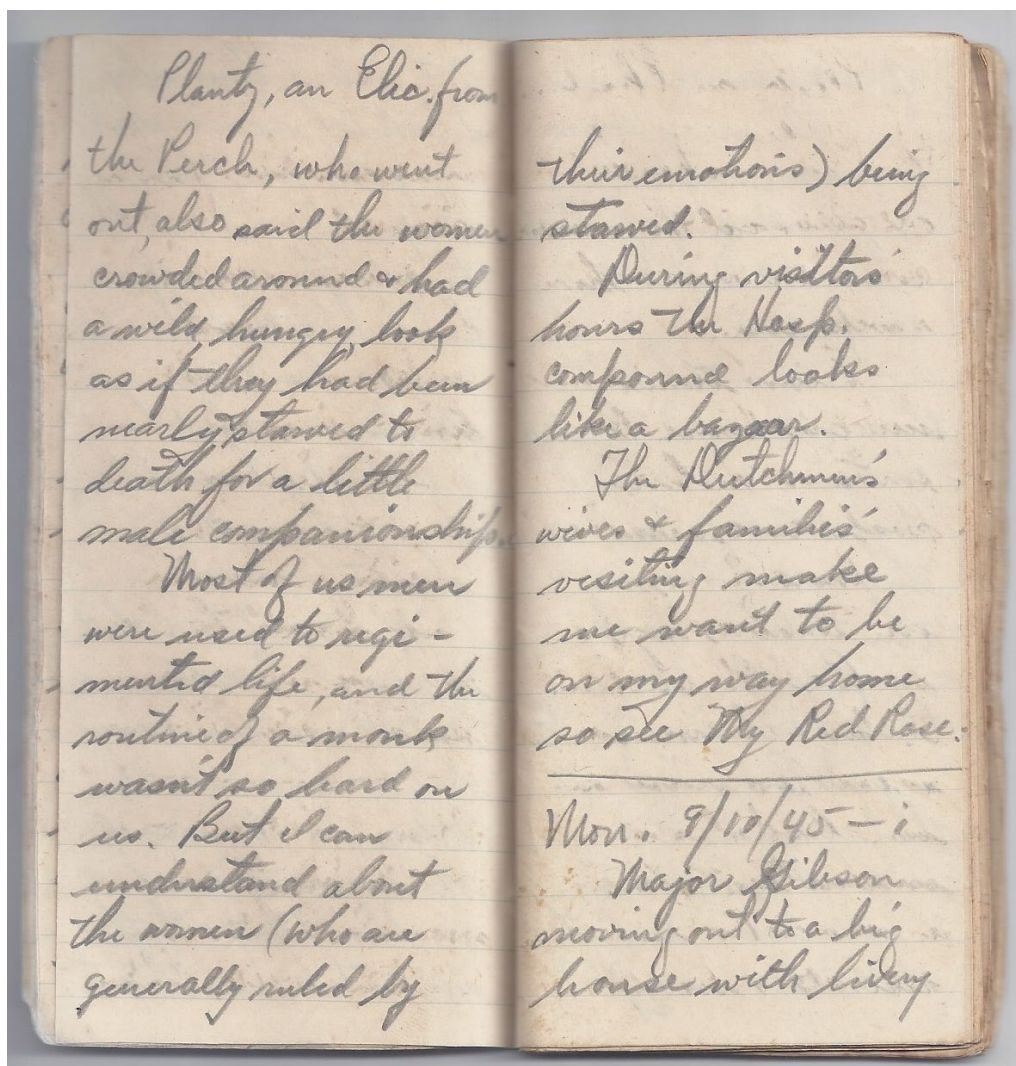 Planty, an Elic. from
the Perch, who went
out, also said the women
crowded around & had
a wild, hungry, look
as if they had been
nearly starved to
death for a little
male companionship.
Most of us men
were used to regi-
mented life, and the
routine of a monk
wasn't so hard on
us. But I can
understand about
the women (who are
generally ruled by
their emotions) being
starved.
During visitors'
hours the Hosp.
compound looks
like a bazaar.
The Dutchmen's
wives & families'
visiting make
me want to be
on my way home
so see My Red Rose.
Mon. 9/10/45 —
Major Gibson
moving out to a big
house with livery